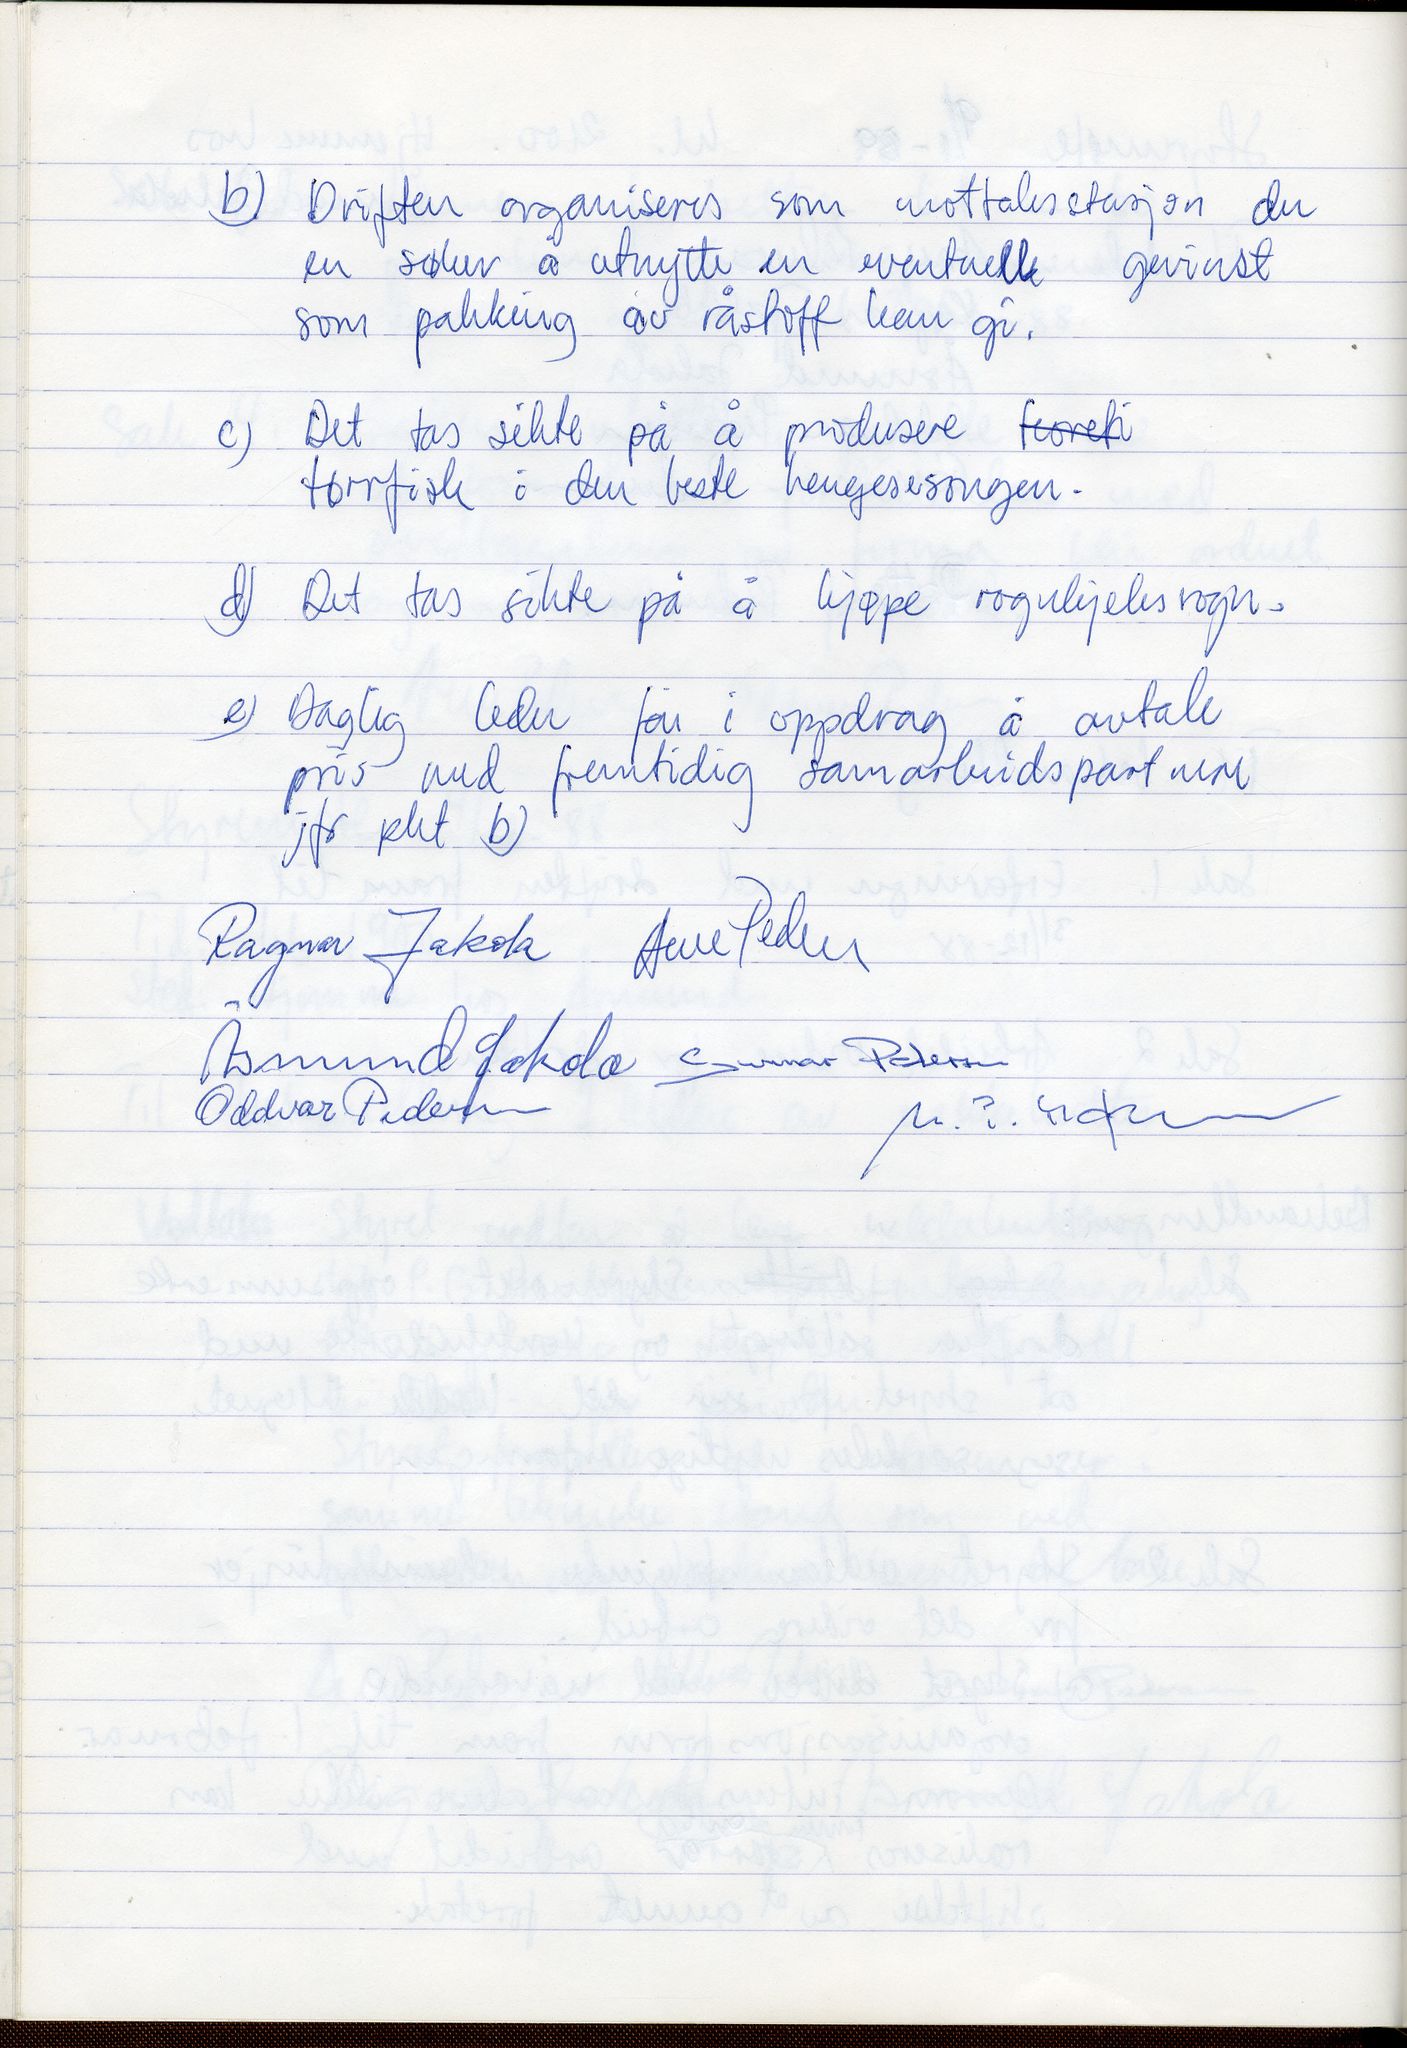 b) Driften organiseres som mottaksstasjon der
en søker å utnytte en eventuelle gevinst
som pakking av råstoff kan gi.
c) Det tas sikte på å produsere
tørrfisk i den beste hengesesongen.
d) Det tas sikte på å kjøpe rognkjeksrogn.
e) Daglig leder får i oppdrag å avtale
pris med fremtidig samarbeidspartnere
jfr pkt b)
Ragnar Jakola Arne Peder
Åsmund Jakola Gunnar Pedersen
Oddvar Pedersen